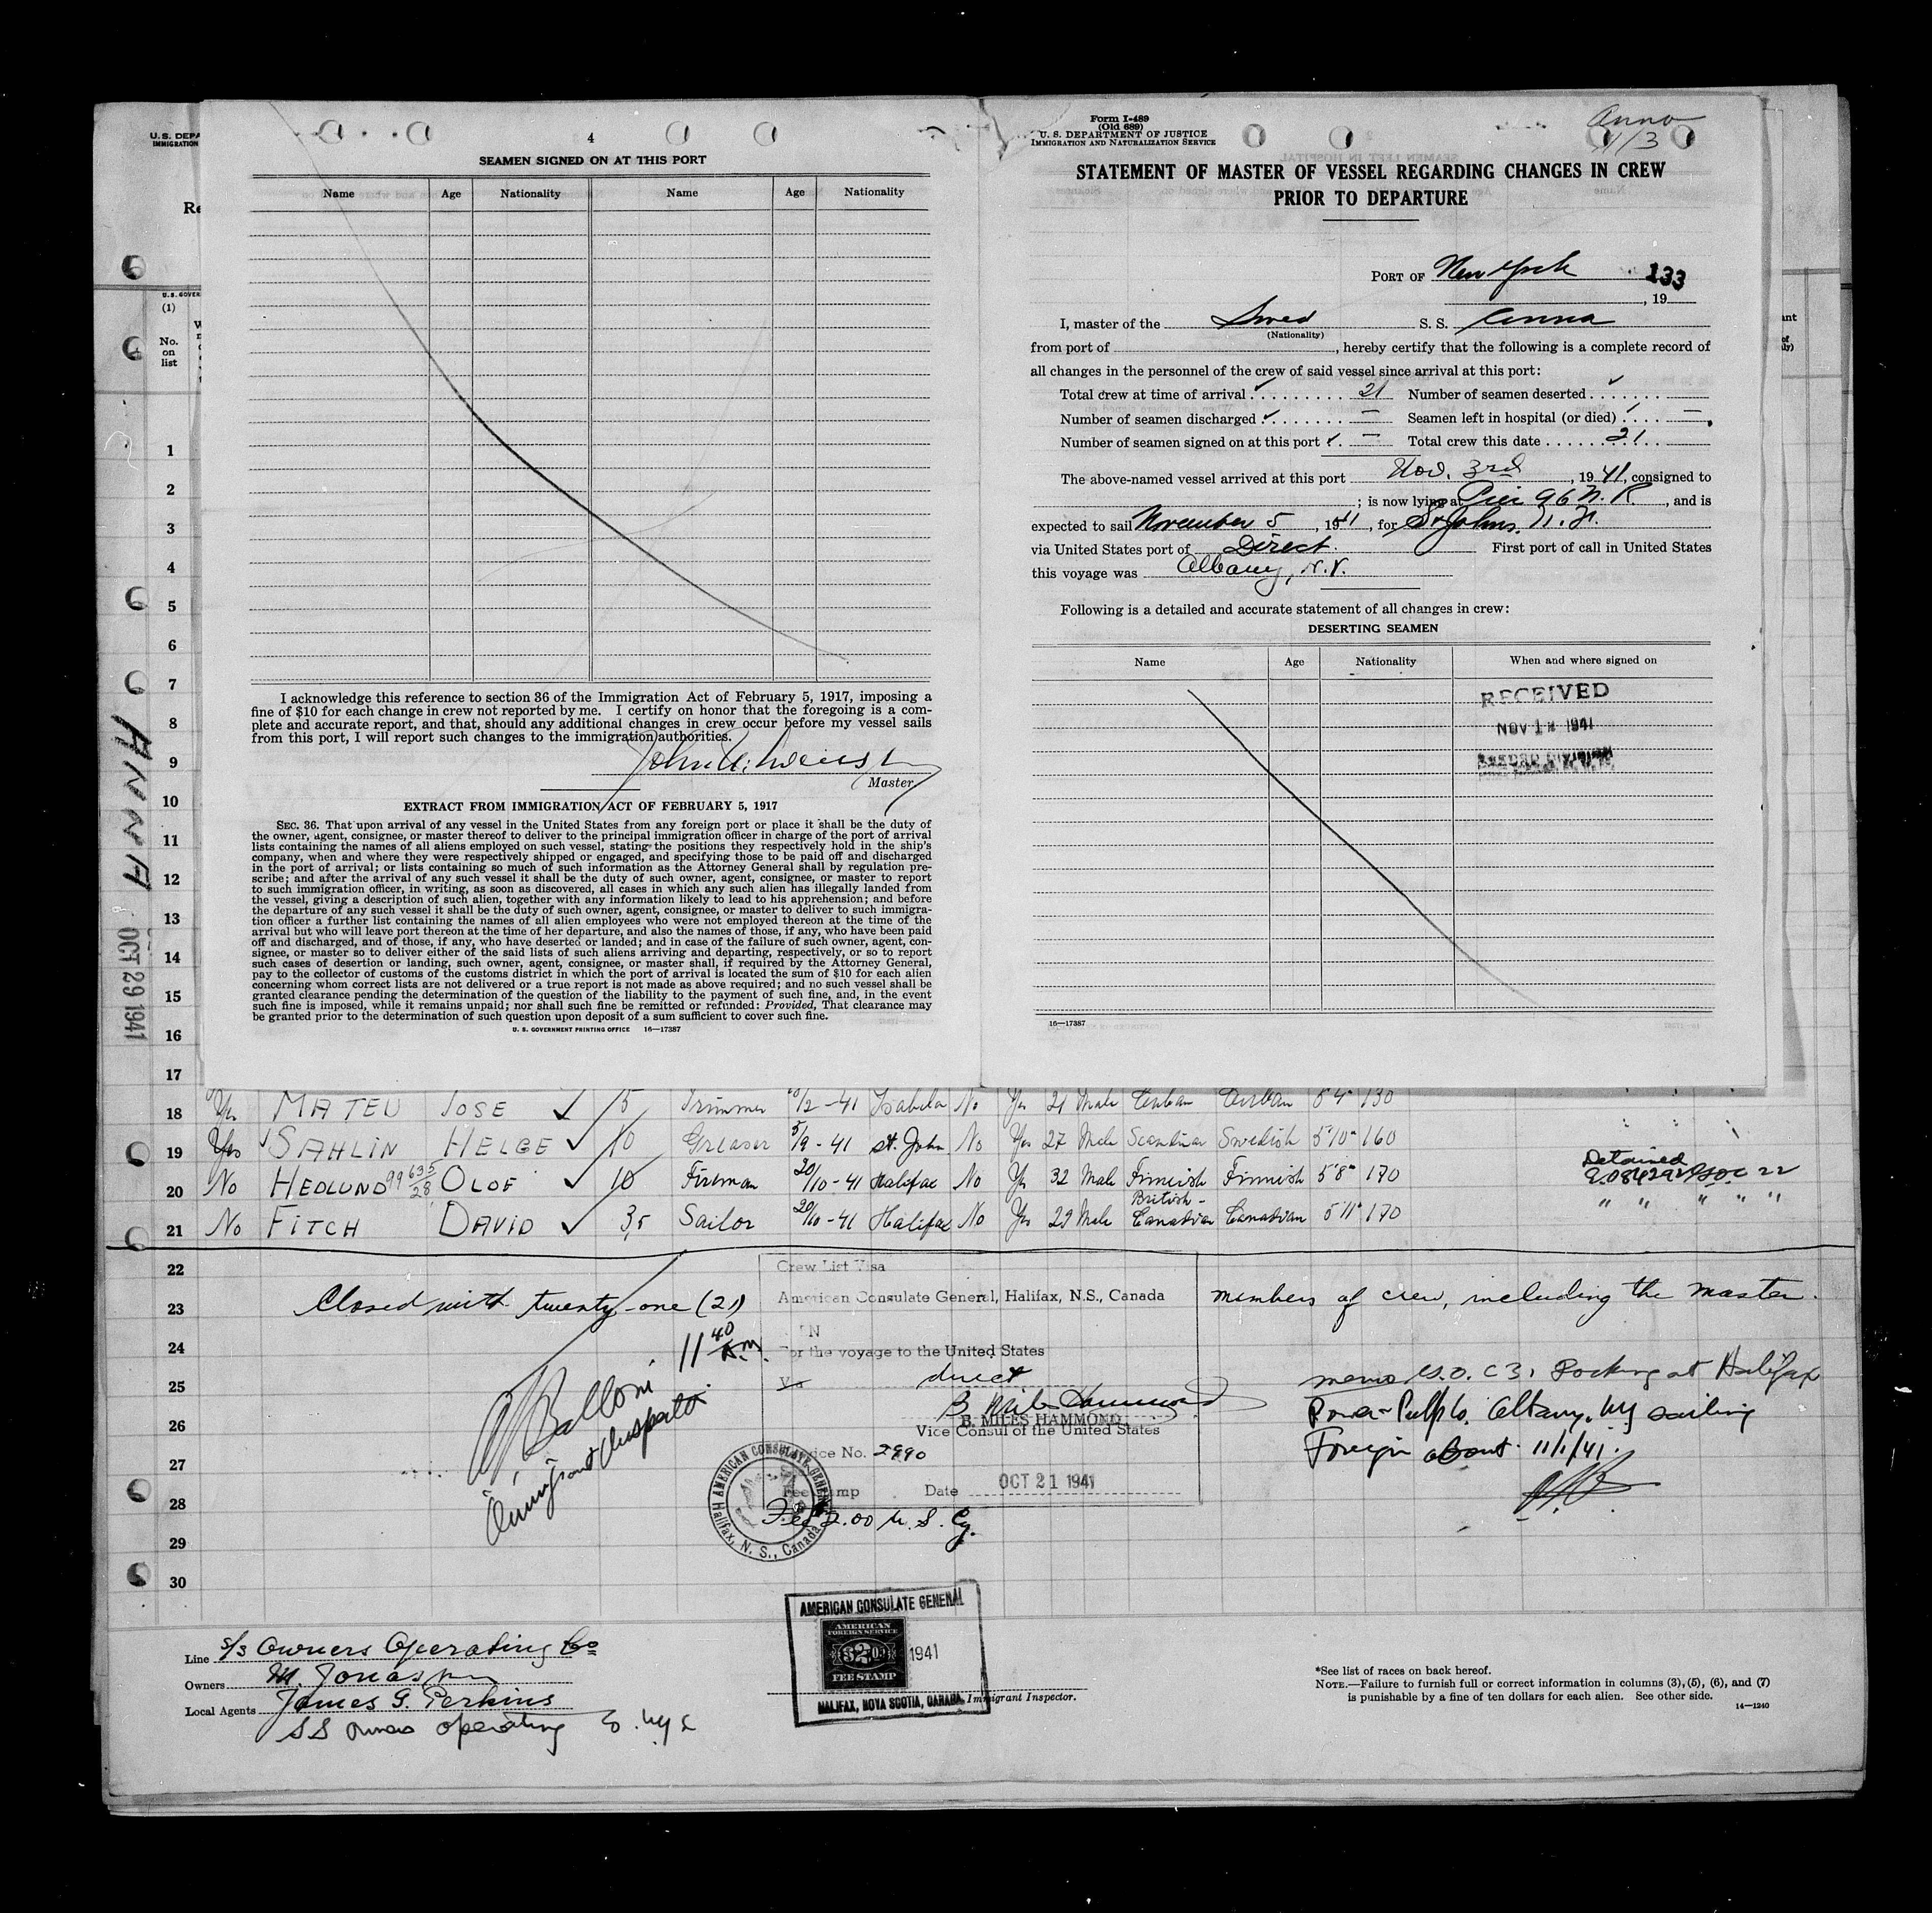 U.S. DEPA
IMMIGRATION
Re
U.S. GOVER
(1)
No.
on
list
4
SEAMEN SIGNED ON AT THIS PORT
Name Age Nationality Name Age Nationality
I acknowledge this reference to section 36 of the Immigration Act of February 5, 1917, imposing a
fine of $10 for each change in crew not reported by me. I certify on honor that the foregoing is a com-
plete and accurate report, and that, should any additional changes in crew occur before my vessel sails
from this port, I will report such changes to the immigration authorities.
Master
EXTRACT FROM IMMIGRATION ACT OF FEBRUARY 5, 1917
SEC. 36. That upon arrival of any vessel in the United States from any foreign port or place it shall be the duty of
the owner, agent, consignee, or master thereof to deliver to the principal immigration officer in charge of the port of arrival
lists containing the names of all aliens employed on such vessel, stating the positions they respectively hold in the ship's
company, when and where they were respectively shipped or engaged, and specifying those to be paid off and discharged
in the port of arrival; or lists containing so much of such information as the Attorney General shall by regulation pre-
scribe; and after the arrival of any such vessel it shall be the duty of such owner, agent, consignee, or master to report
to such immigration officer, in writing, as soon as discovered, all cases in which any such alien has illegally landed from
the vessel, giving a description of such alien, together with any information likely to lead to his apprehension; and before
the departure of any such vessel it shall be the duty of such owner, agent, consignee, or master to deliver to such immigra-
tion officer a further list containing the names of all alien employees who were not employed thereon at the time of the
arrival but who will leave port thereon at the time of her departure, and also the names of those, if any, who have been paid
off and discharged, and of those, if any, who have deserted or landed; and in case of the failure of such owner, agent, con-
signee, or master so to deliver either of the said lists of such aliens arriving and departing, respectively, or so to report
such cases of desertion or landing, such owner, agent, consignee, or master shall, if required by the Attorney General,
pay to the collector of customs of the customs district in which the port of arrival is located the sum of $10 for each alien
concerning whom correct lists are not delivered or a true report is not made as above required; and no such vessel shall be
granted clearance pending the determination of the question of the liability to the payment of such fine, and, in the event
such fine is imposed, while it remains unpaid; nor shall such fine be remitted or refunded: Provided, That clearance may
be granted prior to the determination of such question upon deposit of a sum sufficient to cover such fine.
U. S. GOVERNMENT PRINTING OFFICE 16—17387
Form I-489
(Old 689)
U. S. DEPARTMENT OF JUSTICE
IMMIGRATION AND NATURALIZATION SERVICE
Anna
11/3
STATEMENT OF MASTER OF VESSEL REGARDING CHANGES IN CREW
PRIOR TO DEPARTURE
PORT OF New York 133
, 19
I, master of the Swed S. S. Anna
(Nationality)
from port of , hereby certify that the following is a complete record of
all changes in the personnel of the crew of said vessel since arrival at this port:
Total crew at time of arrival ✓ 21 Number of seamen deserted ✓
Number of seamen discharged ✓ — Seamen left in hospital (or died) ✓ —
Number of seamen signed on at this port ✓ — Total crew this date 21
The above-named vessel arrived at this port Nov. 3rd, 1941, consigned to
; is now lying at Pier 96 N. R., and is
expected to sail November 5, 1941, for St Johns, N. F.
via United States port of Direct. First port of call in United States
this voyage was Albany, N.Y.
Following is a detailed and accurate statement of all changes in crew:
DESERTING SEAMEN
Name Age Nationality When and where signed on
RECEIVED
NOV 1 1941
RECORD DIVISION
16—17387
ANNA OCT 29 1941
1
2
3
4
5
6
7
8
9
10
11
12
13
14
15
16
17
18 Yes MATEU JOSE ✓ 15 Trimmer 10/2-41 Isabela No Yes 21 Male Cuban Cuban 5 4" 130
19 Yes ✓SAHLIN HELGE ✓ 10 Greaser 5/9-41 St. John No Yes 27 Male Scandinav Swedish 5 10" 160
20 No HEDLUND 99 635/28 OLOF ✓ 10 Fireman 20/10-41 Halifax No Yes 32 Male Finnish Finnish 5 8" 170 Detained
21 No FITCH DAVID ✓ 3,5 Sailor 20/10-41 Halifax No Yes 29 Male British-Canadian Canadian 5 11" 170 " " " " "
22
23 Closed with twenty-one (21) members of crew, including the Master.
24
25
26
27
28
29
30
11 40 A.M.
Balloni
Immigrant Inspector
Crew List Visa
American Consulate General, Halifax, N.S., Canada
For the voyage to the United States
Via direct
B. Miles Hammond
B. MILES HAMMOND
Vice Consul of the United States
Service No. 2990
Fee Stamp Date OCT 21 1941
Fee 2.00 U. S. Cy.
AMERICAN CONSULATE GENERAL
Halifax, N. S., Canada
memo G.O. C 31 Docking at Halifax
Power-Pulp Co. Albany, NY sailing
Foreign about 11/1/41.
AMERICAN CONSULATE GENERAL
AMERICAN
FOREIGN SERVICE
$2.00
FEE STAMP
1941
HALIFAX, NOVA SCOTIA, CANADA
Immigrant Inspector.
Line S/S Owners Operating Co
Owners M. Jonasson
Local Agents James G. Perkins
SS Owners Operating Co. NYC
*See list of races on back hereof.
NOTE.—Failure to furnish full or correct information in columns (3), (5), (6), and (7)
is punishable by a fine of ten dollars for each alien. See other side.
14—1240